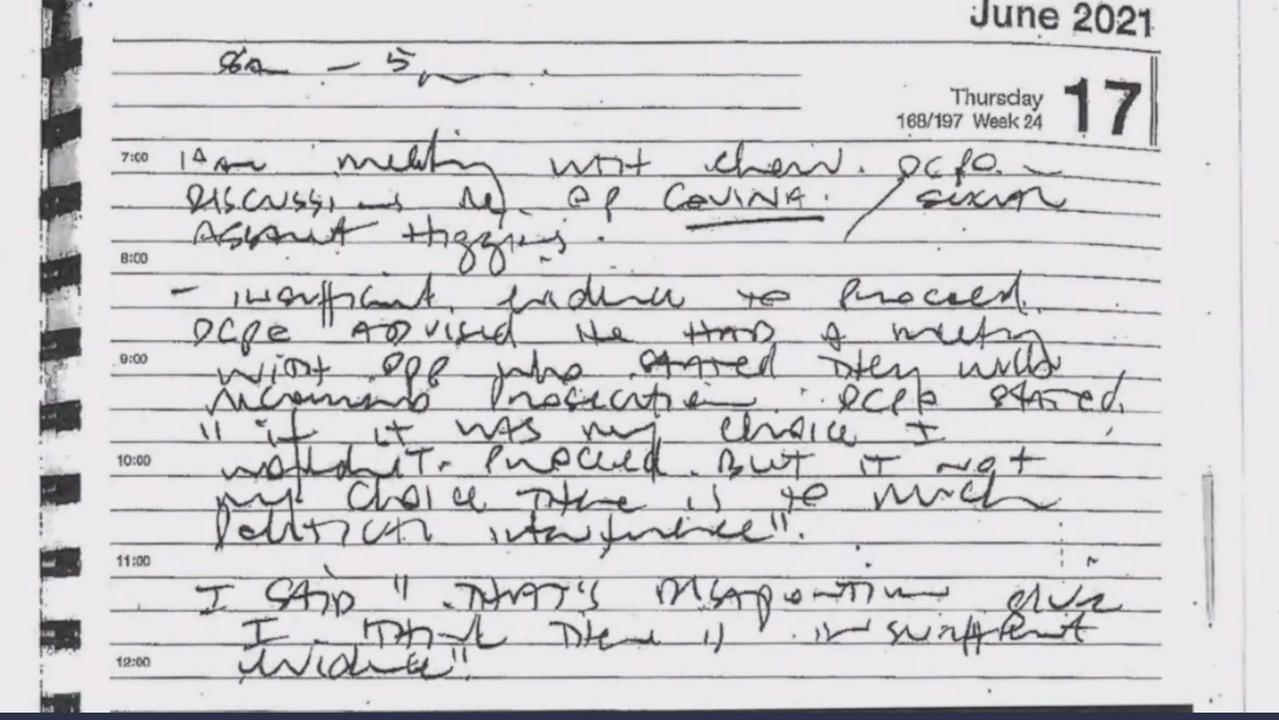 June 2021
8am - 5pm
Thursday 17
168/197 Week 24
7:00 meeting with Chew. DCPO -
DISCUSSIONS Re. OP COVINA. / sexual
ASSAULT Higgins.
8:00
- insufficient evidence to Proceed.
DCPO ADVISED He HAD A meeting
9:00 WITH DPP who STATED THEY WILL
recommend Prosecution. DCPO STATED,
"if it WAS my choice I
10:00 wouldn't Proceed. BUT it not
my choice There is to much
Political interference".
11:00
I SAID "THAT'S DISAPPOINTING given
I THINK There is insufficient
12:00 evidence"